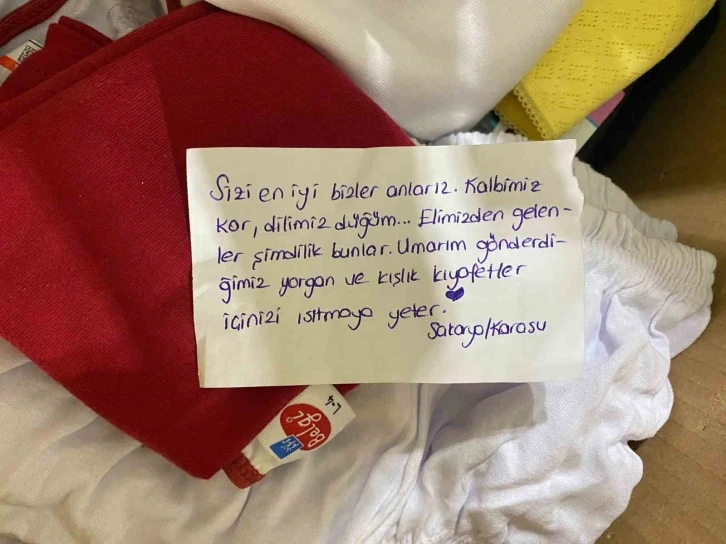 Sizi en iyi bizler anlarız. Kalbimiz
kor, dilimiz düğüm... Elimizden gelen-
ler şimdilik bunlar. Umarım gönderdi-
ğimiz yorgan ve kışlık kıyafetler
içinizi ısıtmaya yeter.
Sakarya/Karasu
Belgi